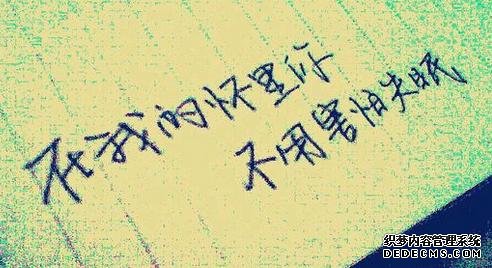 在我的怀里你
不用害怕失眠
织梦内容管理系统
DEDECMS.COM